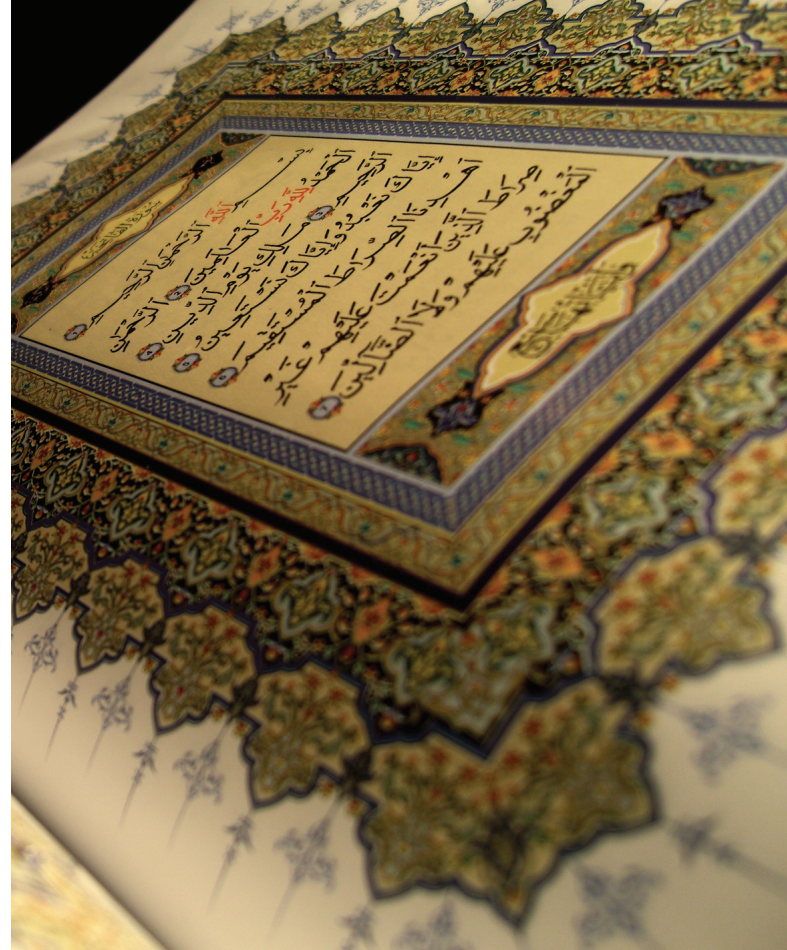 بِسْمِ اللَّهِ الرَّحْمٰنِ الرَّحِيمِ
اَلْحَمْدُ لِلَّهِ رَبِّ الْعَالَمِينَ الرَّحْمٰنِ
الرَّحِيمِ مَالِكِ يَوْمِ الدِّينِ
إِيَّاكَ نَعْبُدُ وَإِيَّاكَ نَسْتَعِينُ
اِهْدِنَا الصِّرَاطَ الْمُسْتَقِيمَ
صِرَاطَ الَّذِينَ أَنْعَمْتَ عَلَيْهِمْ غَيْرِ
الْمَغْضُوبِ عَلَيْهِمْ وَلَا الضَّالِّينَ